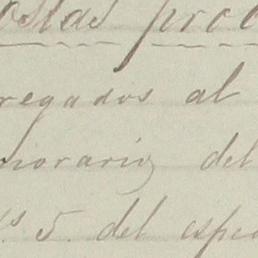 ostas proc
regados al
norario, del
s 5. del espe